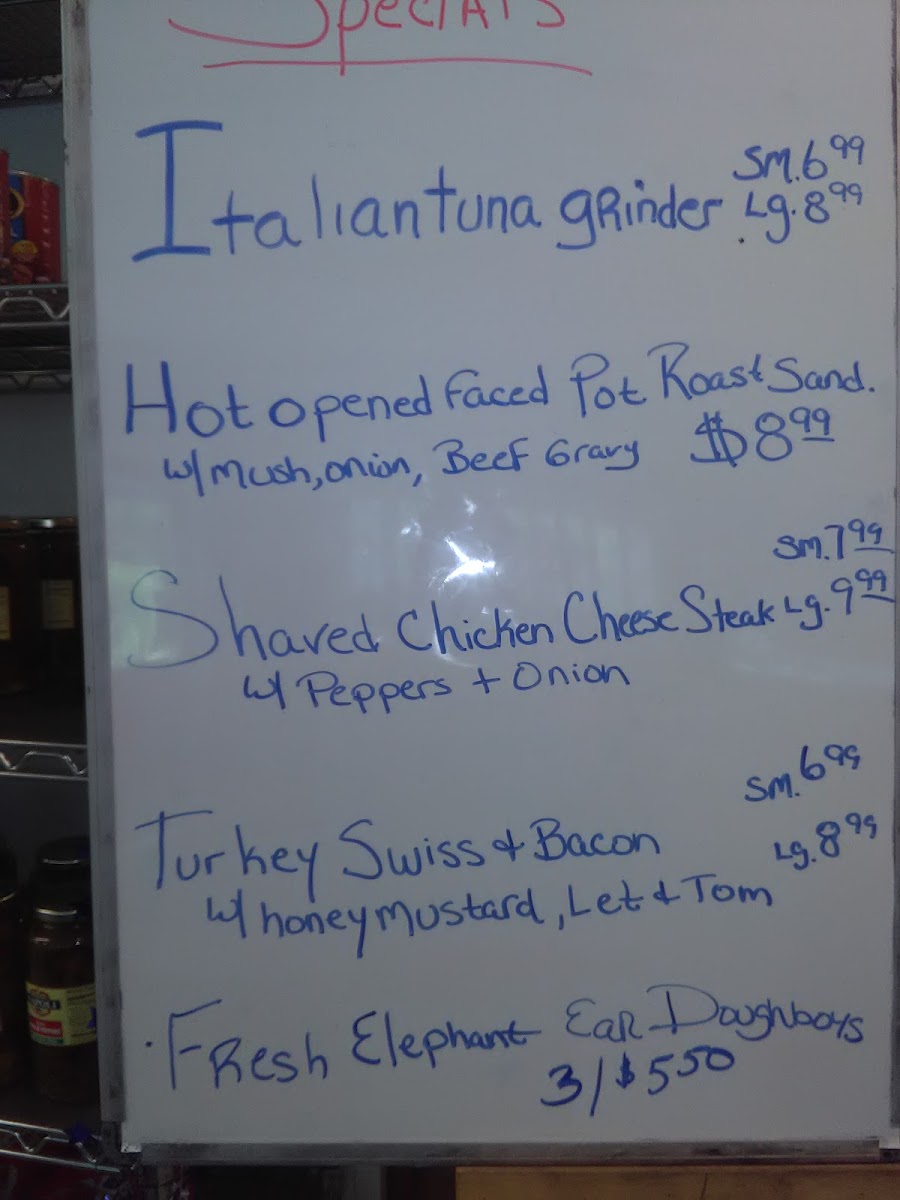 Specials
Italian tuna grinder
Sm. 6.99
Lg. 8.99
Hot opened Faced Pot Roast Sand.
w/ Mush, onion, Beef Gravy $8.99
Shaved Chicken Cheese Steak
Sm. 7.99
Lg. 9.99
w/ Peppers + Onion
Turkey Swiss & Bacon
Sm. 6.99
Lg. 8.99
w/ honey mustard, Let & Tom
Fresh Elephant Ear Doughboys
3/$5.50